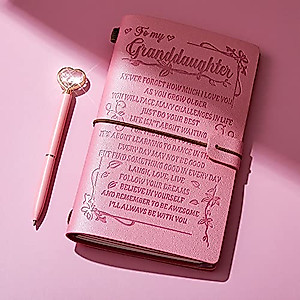 To my
Granddaughter
NEVER FORGET HOW MUCH I LOVE YOU
AS YOU GROW OLDER
YOU WILL FACE MANY CHALLENGES IN LIFE
JUST DO YOUR BEST
LIFE ISN'T ABOUT WAITING
IT'S ABOUT LEARNING TO DANCE IN THE
EVERY DAY MAY NOT BE GOOD
BUT FIND SOMETHING GOOD IN EVERY DAY
LAUGH, LOVE, LIVE
FOLLOW YOUR DREAMS
BELIEVE IN YOURSELF
AND REMEMBER TO BE AWESOME
I'LL ALWAYS BE WITH YOU